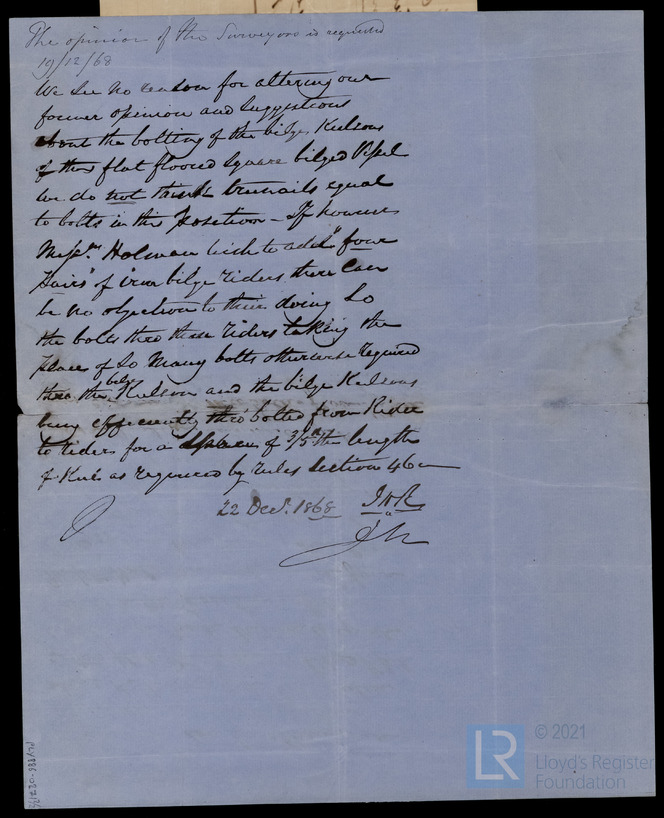 The opinion of the Surveyors is requested
19/12/68
We see no reason for altering our
former opinion and Suggestions
about the bolting of the bilge Kelsons
of this flat floored Square bilged Vessel
We do not think treenails equal
to bolts in this position - If however
Mess.rs Holman wish to add "four
pairs" of iron bilge riders there can
be no objection to their doing So
the bolts thro these riders taking the
place of So Many bolts otherwise required
thro the bilge Kelson and the bilge Kelsons
being efficiently thro' bolted from Rider
to riders for a of 3/5th the length
of Keel as required by rules Section 46
22 Decr. 1868
© 2021
LR
Lloyd's Register
Foundation